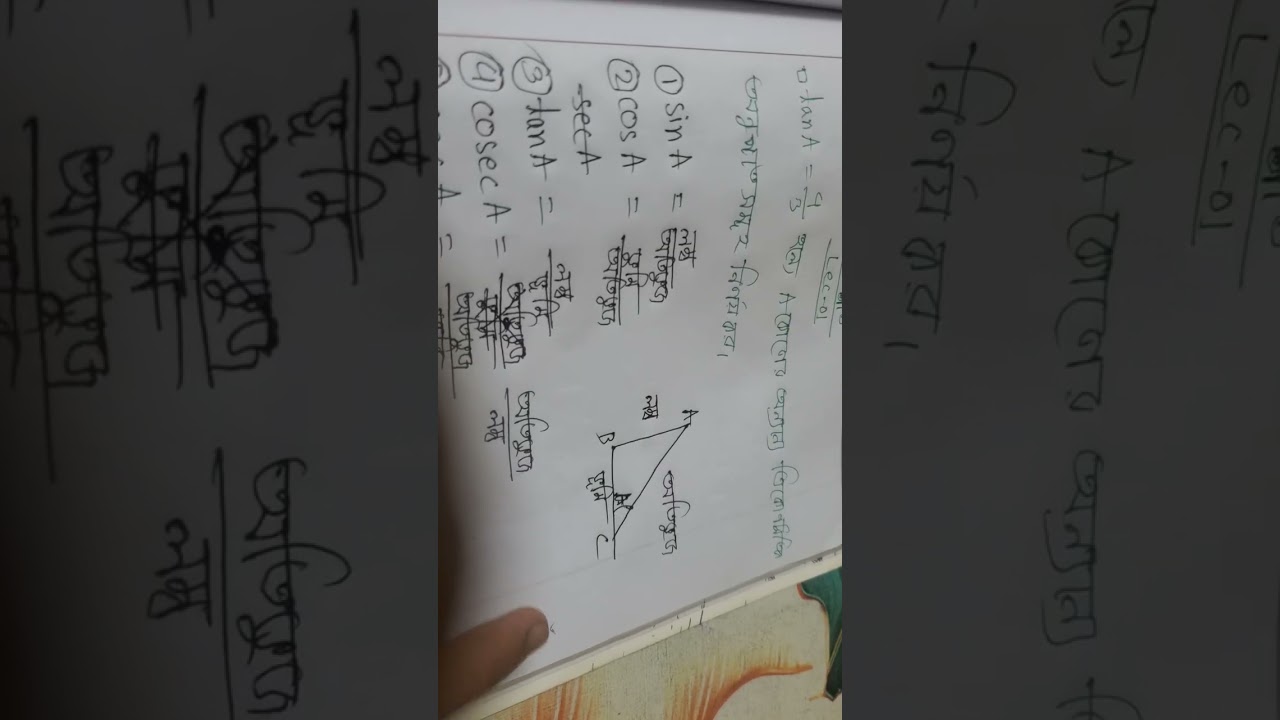 Lec-01
□ tanA = 4/3 হলে A কোনের অন্যান্য ত্রিকোনমিতিক
অনুপাত সমূহ নির্ণয় কর।
① sinA = লম্ব/অতিভুজ
② cosA = ভূমি/অতিভুজ
secA
③ tanA = লম্ব/ভূমি
④ cosecA = অতিভুজ/লম্ব
A
লম্ব
অতিভুজ
B
ভূমি
C